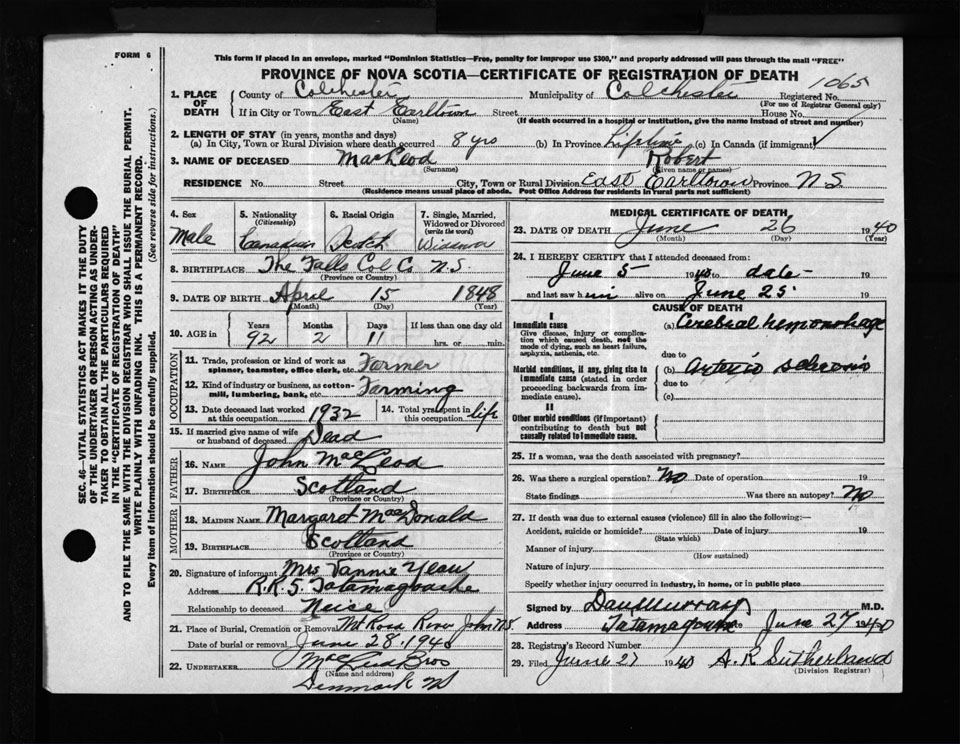 FORM 6
This form if placed in an envelope, marked "Dominion Statistics—Free, penalty for improper use $300," and properly addressed will pass through the mail "FREE"
PROVINCE OF NOVA SCOTIA—CERTIFICATE OF REGISTRATION OF DEATH
1065
1. PLACE OF DEATH County of Colchester Municipality of Colchester Registered No.
(For use of Registrar General only)
If in City or Town East Earltown Street House No.
(Name) (If death occurred in a hospital or institution, give the name instead of street and number)
2. LENGTH OF STAY (in years, months and days)
(a) In City, Town or Rural Division where death occurred 8 yrs (b) In Province Lifetime (c) In Canada (if immigrant)
3. NAME OF DECEASED MacLeod Robert
(Surname) (Given name or names)
RESIDENCE No. Street City, Town or Rural Division East Earltown Province N.S.
(Residence means usual place of abode. Post Office Address for residents in rural parts not sufficient)
4. Sex Male
5. Nationality (Citizenship) Canadian
6. Racial Origin Scotch
7. Single, Married, Widowed or Divorced (write the word) Widower
8. BIRTHPLACE The Falls Col Co N.S.
(Province or Country)
9. DATE OF BIRTH April 15 1848
(Month) (Day) (Year)
10. AGE in Years 92 Months 2 Days 11 If less than one day old hrs. or min.
OCCUPATION
11. Trade, profession or kind of work as spinner, teamster, office clerk, etc. Farmer
12. Kind of industry or business, as cotton-mill, lumbering, bank, etc. Farming
13. Date deceased last worked at this occupation 1932
14. Total yrs spent in this occupation life
15. If married give name of wife or husband of deceased Dead
FATHER
16. NAME John MacLeod
17. BIRTHPLACE Scotland
(Province or Country)
MOTHER
18. MAIDEN NAME Margaret MacDonald
19. BIRTHPLACE Scotland
(Province or Country)
20. Signature of informant Mrs
Address R.R. 5 Tatamagouche
Relationship to deceased Neice
21. Place of Burial, Cremation or Removal Mt Ross River John N.S.
Date of burial or removal June 28. 1940
22. UNDERTAKER MacLeod Bros
(Name and address)
Denmark NS
MEDICAL CERTIFICATE OF DEATH
23. DATE OF DEATH June 26 1940
(Month) (Day) (Year)
24. I HEREBY CERTIFY that I attended deceased from:
June 5 1940 to date 19
and last saw him alive on June 25 19
CAUSE OF DEATH
I
Immediate cause
Give disease, injury or complication which caused death, not the mode of dying, such as heart failure, asphyxia, asthenia, etc.
(a) Cerebral hemorrhage
due to
Morbid conditions, if any, giving rise to immediate cause (stated in order proceeding backwards from immediate cause).
(b) Arterio sclerosis
due to
(c)
II
Other morbid conditions (if important) contributing to death but not causally related to immediate cause.
25. If a woman, was the death associated with pregnancy?
26. Was there a surgical operation? No Date of operation 19
State findings Was there an autopsy? No
27. If death was due to external causes (violence) fill in also the following:—
Accident, suicide or homicide? Date of injury 19
(State which)
Manner of injury
(How sustained)
Nature of injury
Specify whether injury occurred in industry, in home, or in public place
Signed by Dan Murray M.D.
Address Tatamagouche June 27 1940
28. Registrar's Record Number
29. Filed June 27 1940 A. R Sutherland
(Division Registrar)
SEC. 46—VITAL STATISTICS ACT MAKES IT THE DUTY
OF THE UNDERTAKER OR PERSON ACTING AS UNDER-
TAKER TO OBTAIN ALL THE PARTICULARS REQUIRED
IN THE "CERTIFICATE OF REGISTRATION OF DEATH"
AND TO FILE THE SAME WITH THE DIVISION REGISTRAR WHO SHALL ISSUE THE BURIAL PERMIT.
WRITE PLAINLY WITH UNFADING INK. THIS IS A PERMANENT RECORD.
Every item of information should be carefully supplied. (See reverse side for instructions.)